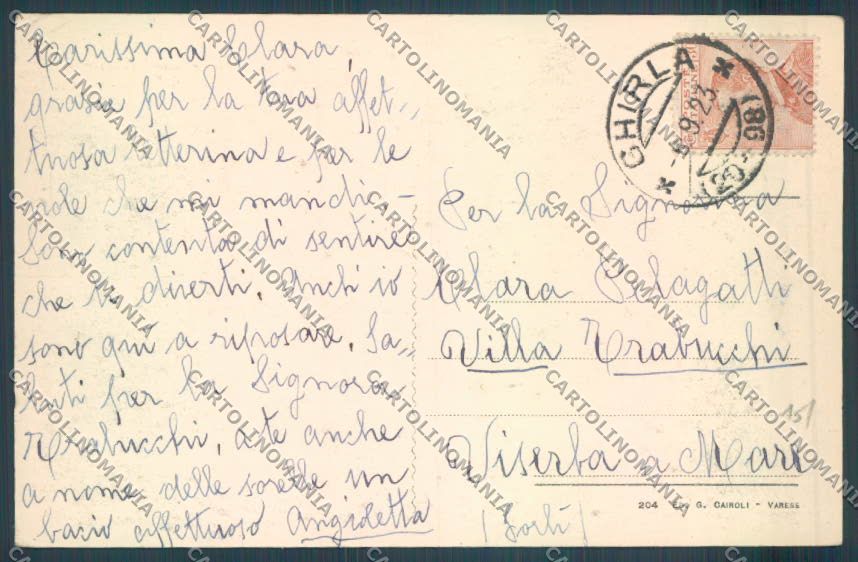 Carissima Clara,
grazie per la tua affet-
tuosa letterina e per le
parole che mi mandi-
Sono contenta di sentire
che ti diverti. Anch'io
sono qui a riposare. Sa-
luti per la Signora
Trabucchi, a te anche
a nome delle sorelle un
bacio affettuoso Angioletta
GHIRLA
9.23
(86
Per la Signorina
Clara Pelagatti
Villa Trabucchi
Viserba a Mare
(Forlì)
151
204 Ed. G. CAIROLI - VARESE
CARTOLINOMANIA